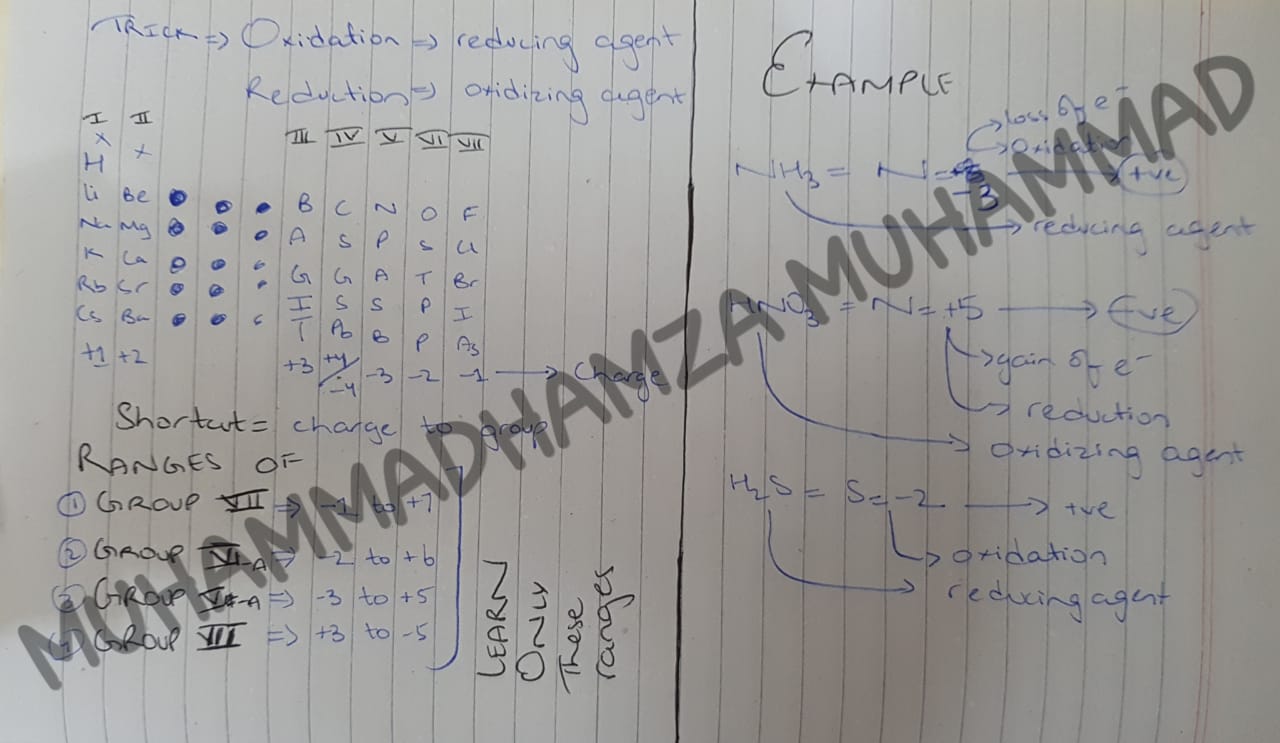 TRICK => Oxidation => reducing agent
Reduction => oxidizing agent
I II
x x
III IV V VI VII
H
Li Be B C N O F
Na Mg A S P S Cl
K Ca G G A T Br
Rb Sr I S S P I
Cs Ba T Pb B P As
+1 +2 +3 +4/-4 -3 -2 -1 → Charge
Shortcut = charge to group
RANGES OF
① GROUP VII => -1 to +7
② GROUP VI-A => -2 to +6
③ GROUP V-A => -3 to +5
④ GROUP VII => +3 to -5
LEARN
ONLY
These
ranges
EXAMPLE
loss of e⁻
Oxidation
NH₃ = N = -3 → +ve
reducing agent
HNO₃ = N = +5 → -ve
gain of e⁻
reduction
oxidizing agent
H₂S = S = -2 → +ve
oxidation
reducing agent
MUHAMMADHAMZA MUHAMMAD